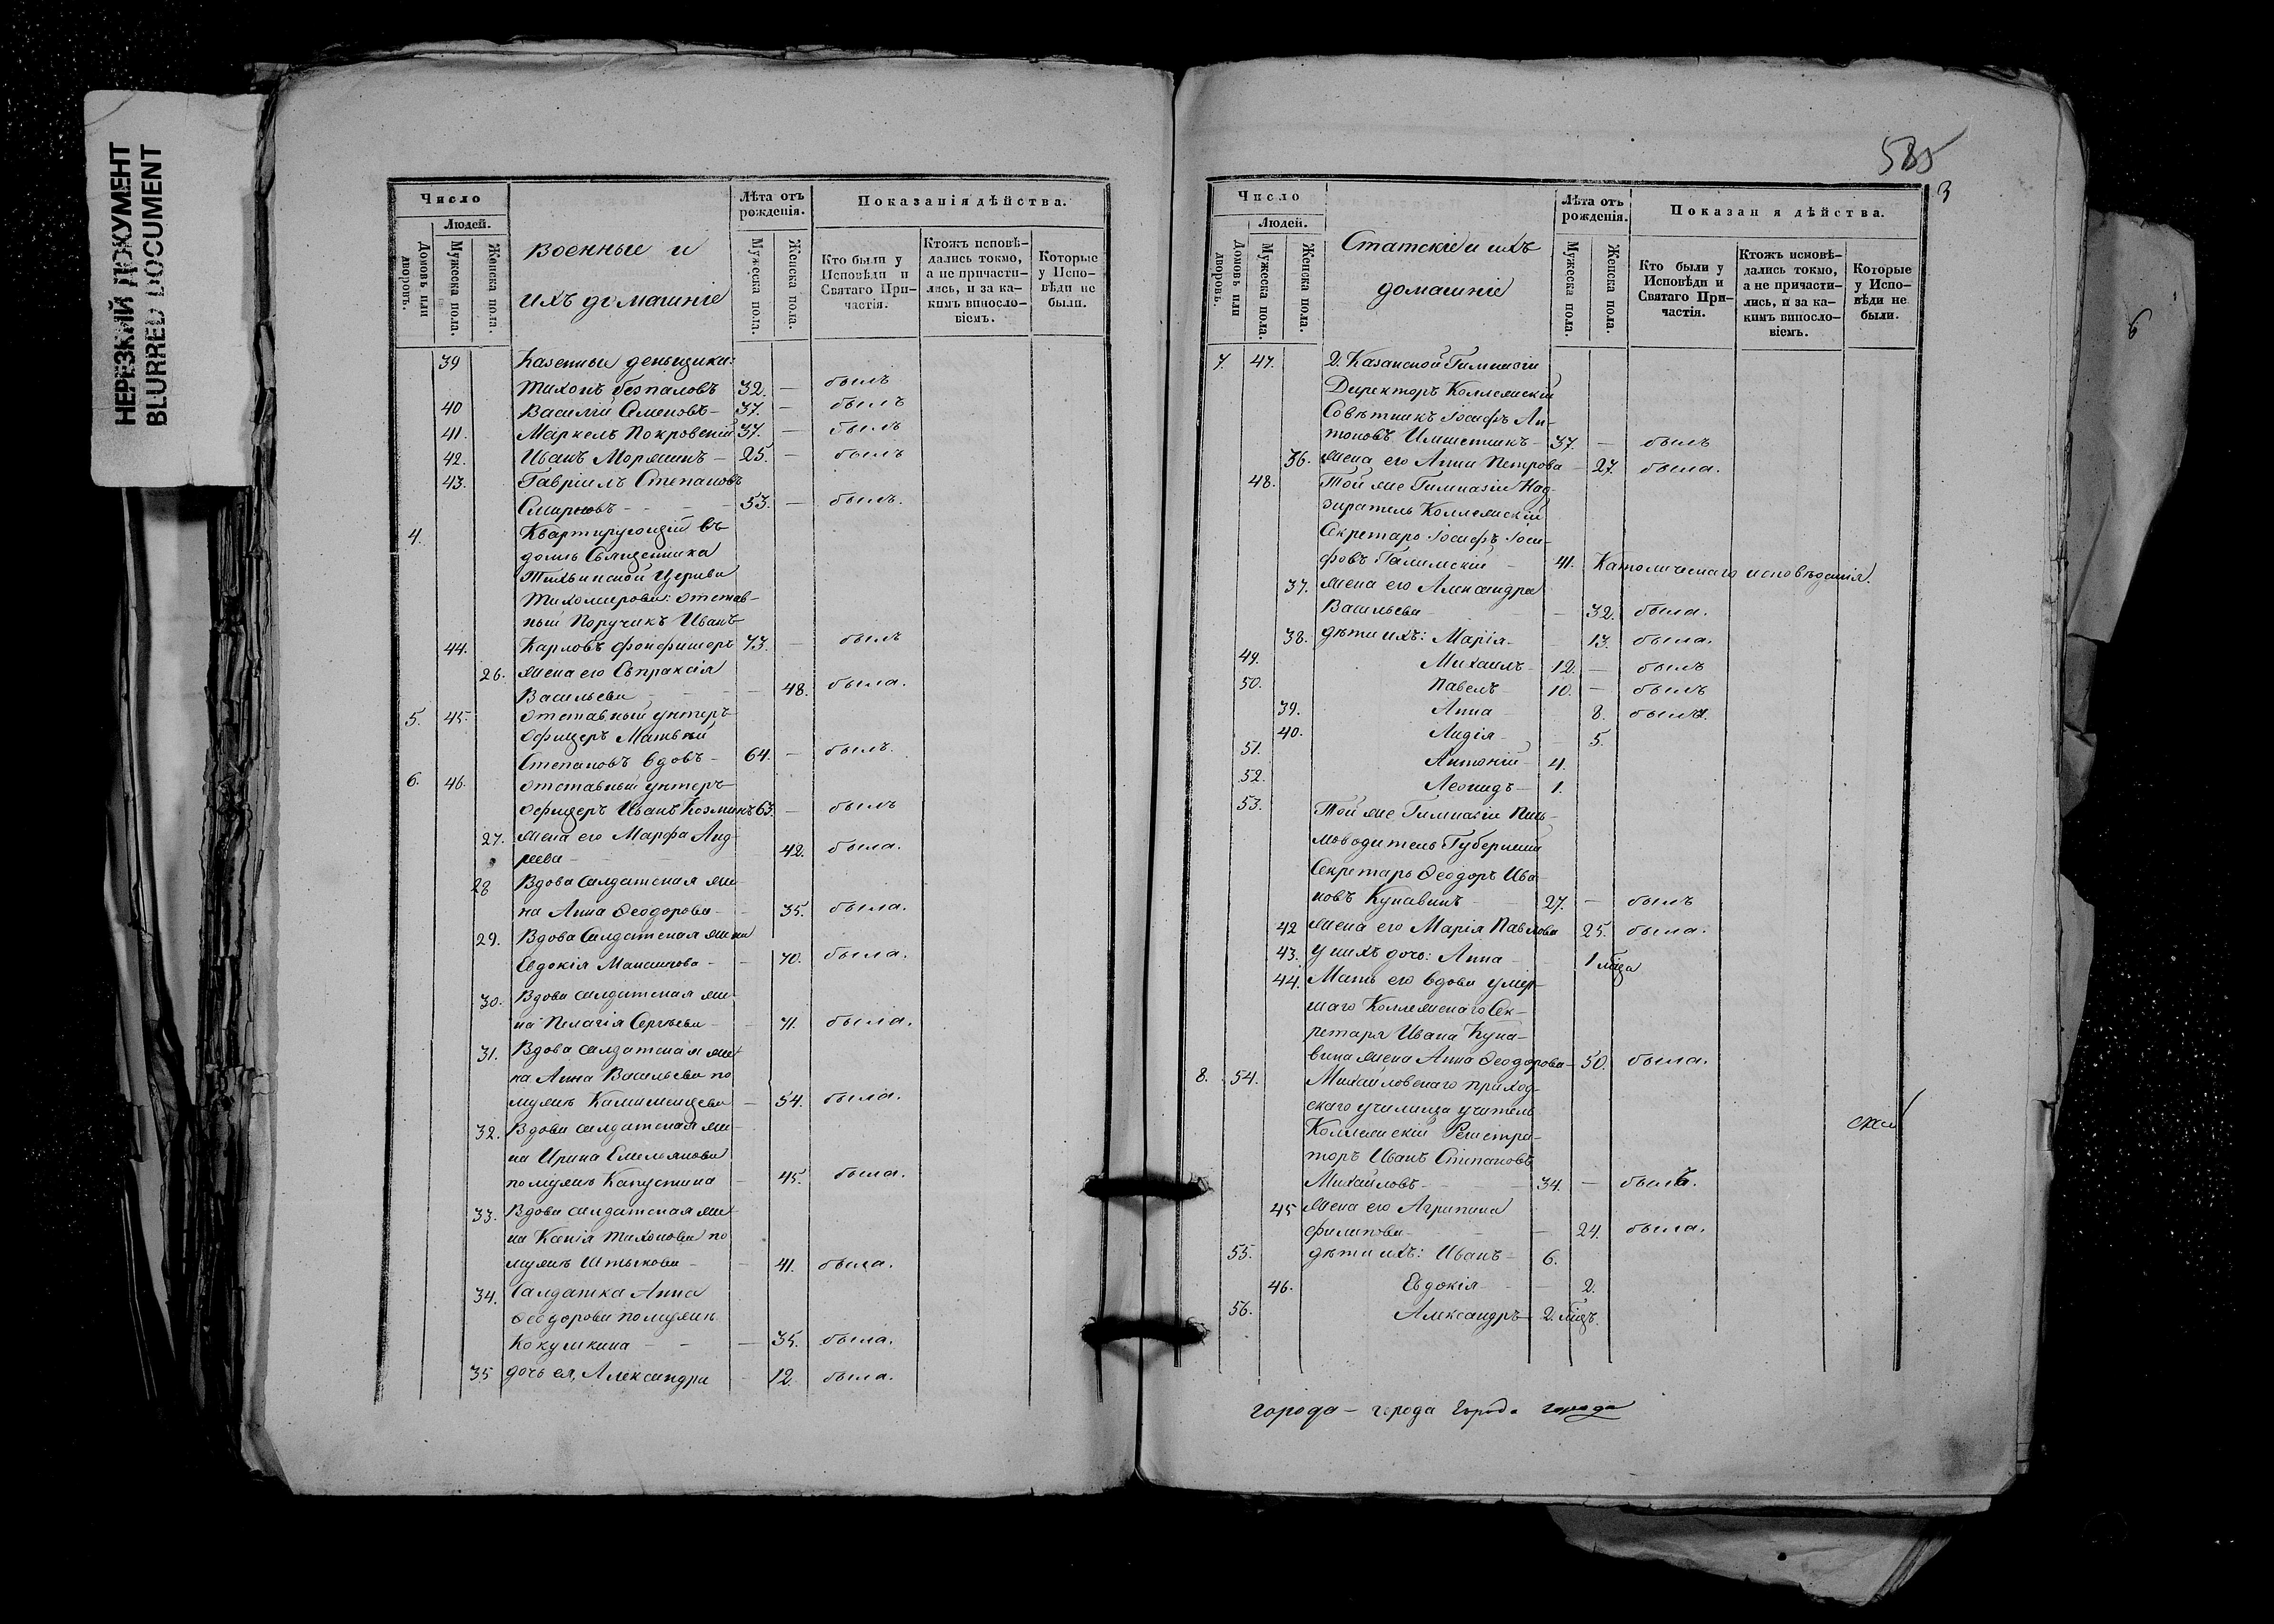 НЕРЕЗКИЙ ДОКУМЕНТ
BLURRED DOCUMENT
Число
Людей.
Домовъ или дворовъ.
Мужеска пола.
Женска пола.
Военные и
ихъ домашніе
Лѣта отъ рожденія.
Мужеска пола.
Женска пола.
Показанія дѣйства.
Кто были у Исповѣди и Святаго Причастія.
Ктожъ исповѣдались токмо, а не причастились, и за какимъ винословіемъ.
Которые у Исповѣди не были.
39 Казенные деньщики:
Тихонъ Безпаловъ 32. — былъ
40 Василій Семеновъ — 37. — былъ
41. Маркелъ Покровскій 37. — былъ
42. Иванъ Моряшъ — 25. — былъ
43. Гавріилъ Степановъ
Смирновъ — 53. — былъ.
4. Квартирующій въ
домѣ Священника
Тихвинской Церкви
Тихомирова: отстав-
ный Поручикъ Иванъ
44. Карловъ фонфишеръ 73. — былъ
26. жена его Евпраксія
Васильева — 48. была.
5. 45. Отставный унтеръ
Офицеръ Матвѣй
Степановъ вдовъ — 64. — былъ.
6. 46. Отставный унтеръ
Офицеръ Иванъ Козминъ 63. — былъ
27. жена его Марфа Анд-
реева — 42. была.
28 Вдова салдатская же-
на Анна Ѳеодорова — 35. была.
29. Вдова Салдатская жена
Евдокія Максимова — 70. была.
30. Вдова салдатская же-
на Пелагія Сергѣева — 71. была.
31. Вдова салдатская же-
на Анна Васильева по
мужѣ Камышенцева — 54. была.
32. Вдова салдатская же-
на Ирина Емельянова
по мужѣ Капустина — 45. была.
33. Вдова салдатская же-
на Ксенія Тихонова по
мужѣ Штыкова — 41. была.
34. Салдатка Анна
Ѳеодорова по мужѣ
Кокушкина — 35. была.
35 дочь ея, Александра — 12. была.
585
3
Число
Людей.
Домовъ или дворовъ.
Мужеска пола.
Женска пола.
Статскіе и ихъ
домашніе
Лѣта отъ рожденія.
Мужеска пола.
Женска пола.
Показан я дѣйства.
Кто были у Исповѣди и Святаго Причастія.
Ктожъ исповѣдались токмо, а не причастились, и за какимъ винословіемъ.
Которые у Исповѣди не были.
7. 47. 2. Казанской Гимназіи
Директоръ Коллежскій
Совѣтникъ Іосифъ Ан-
тоновъ — 37. — былъ
36. жена его Анна Петрова — 27. была.
48. Той же Гимназіи Над-
зиратель Коллежскій
Секретарь Іосифъ Іоси-
фовъ — 41. Католическаго исповѣданія.
37. жена его Александра
Васильева — 32. была.
38. дѣти ихъ: Марія — 13. была.
49. Михаилъ — 12. — былъ
50. Павелъ — 10. — былъ
39. Анна — 8. была.
40. Лидія — 5.
51. Антоній — 4.
52. Леонидъ — 1.
53. Той же Гимназіи Пись-
моводитель Губернскій
Секретарь Ѳеодоръ Ива-
новъ Кунавинъ — 27. — былъ
42 жена его Марія Павлова 25. была.
43. у нихъ дочь: Анна — 1 мѣца
44. Мать его вдова умер-
шаго Коллежскаго Сек-
ретаря Ивана Куна-
вина жена Анна Ѳеодорова — 50. была.
8. 54. Михайловскаго приход-
скаго училища учитель
Коллежскій Регистра-
торъ Иванъ Степановъ
Михайловъ — 34. — былъ.
45 жена его Агрипина
Филипова — 24. была.
55. дѣти ихъ: Иванъ — 6.
46. Евдокія — 2.
56. Александръ — 2. мѣцъ.
города — города города города
6